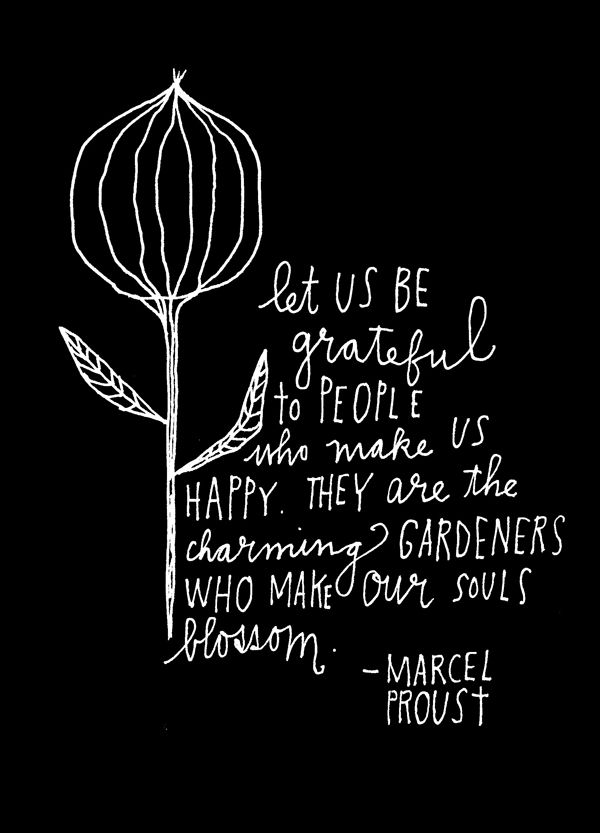 let US BE
grateful
to PEOPLE
who make US
HAPPY. THEY are the
charming GARDENERS
WHO MAKE our SOULS
blossom.
-MARCEL
PROUST